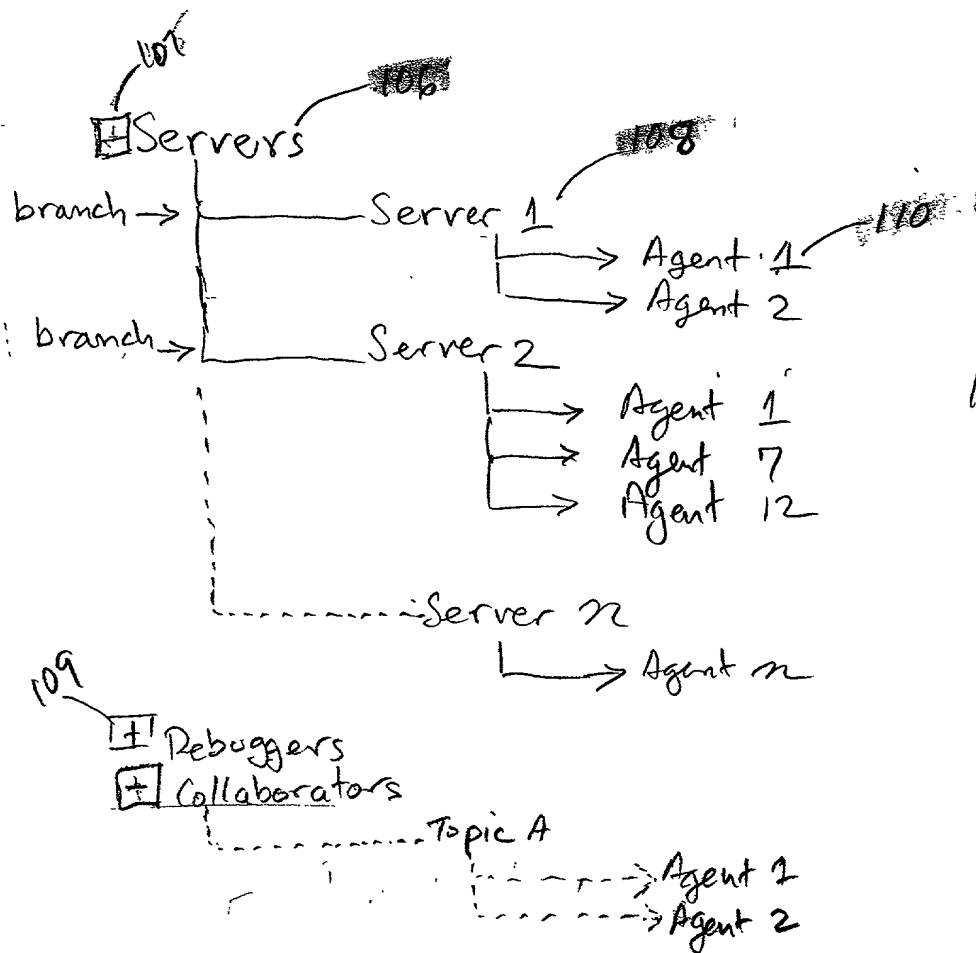 107
106
+ Servers
108
branch → Server 1
110
Agent 1
Agent 2
branch → Server 2
Agent 1
Agent 7
Agent 12
Server n
Agent n
109
+ Debuggers
+ Collaborators
Topic A
Agent 1
Agent 2